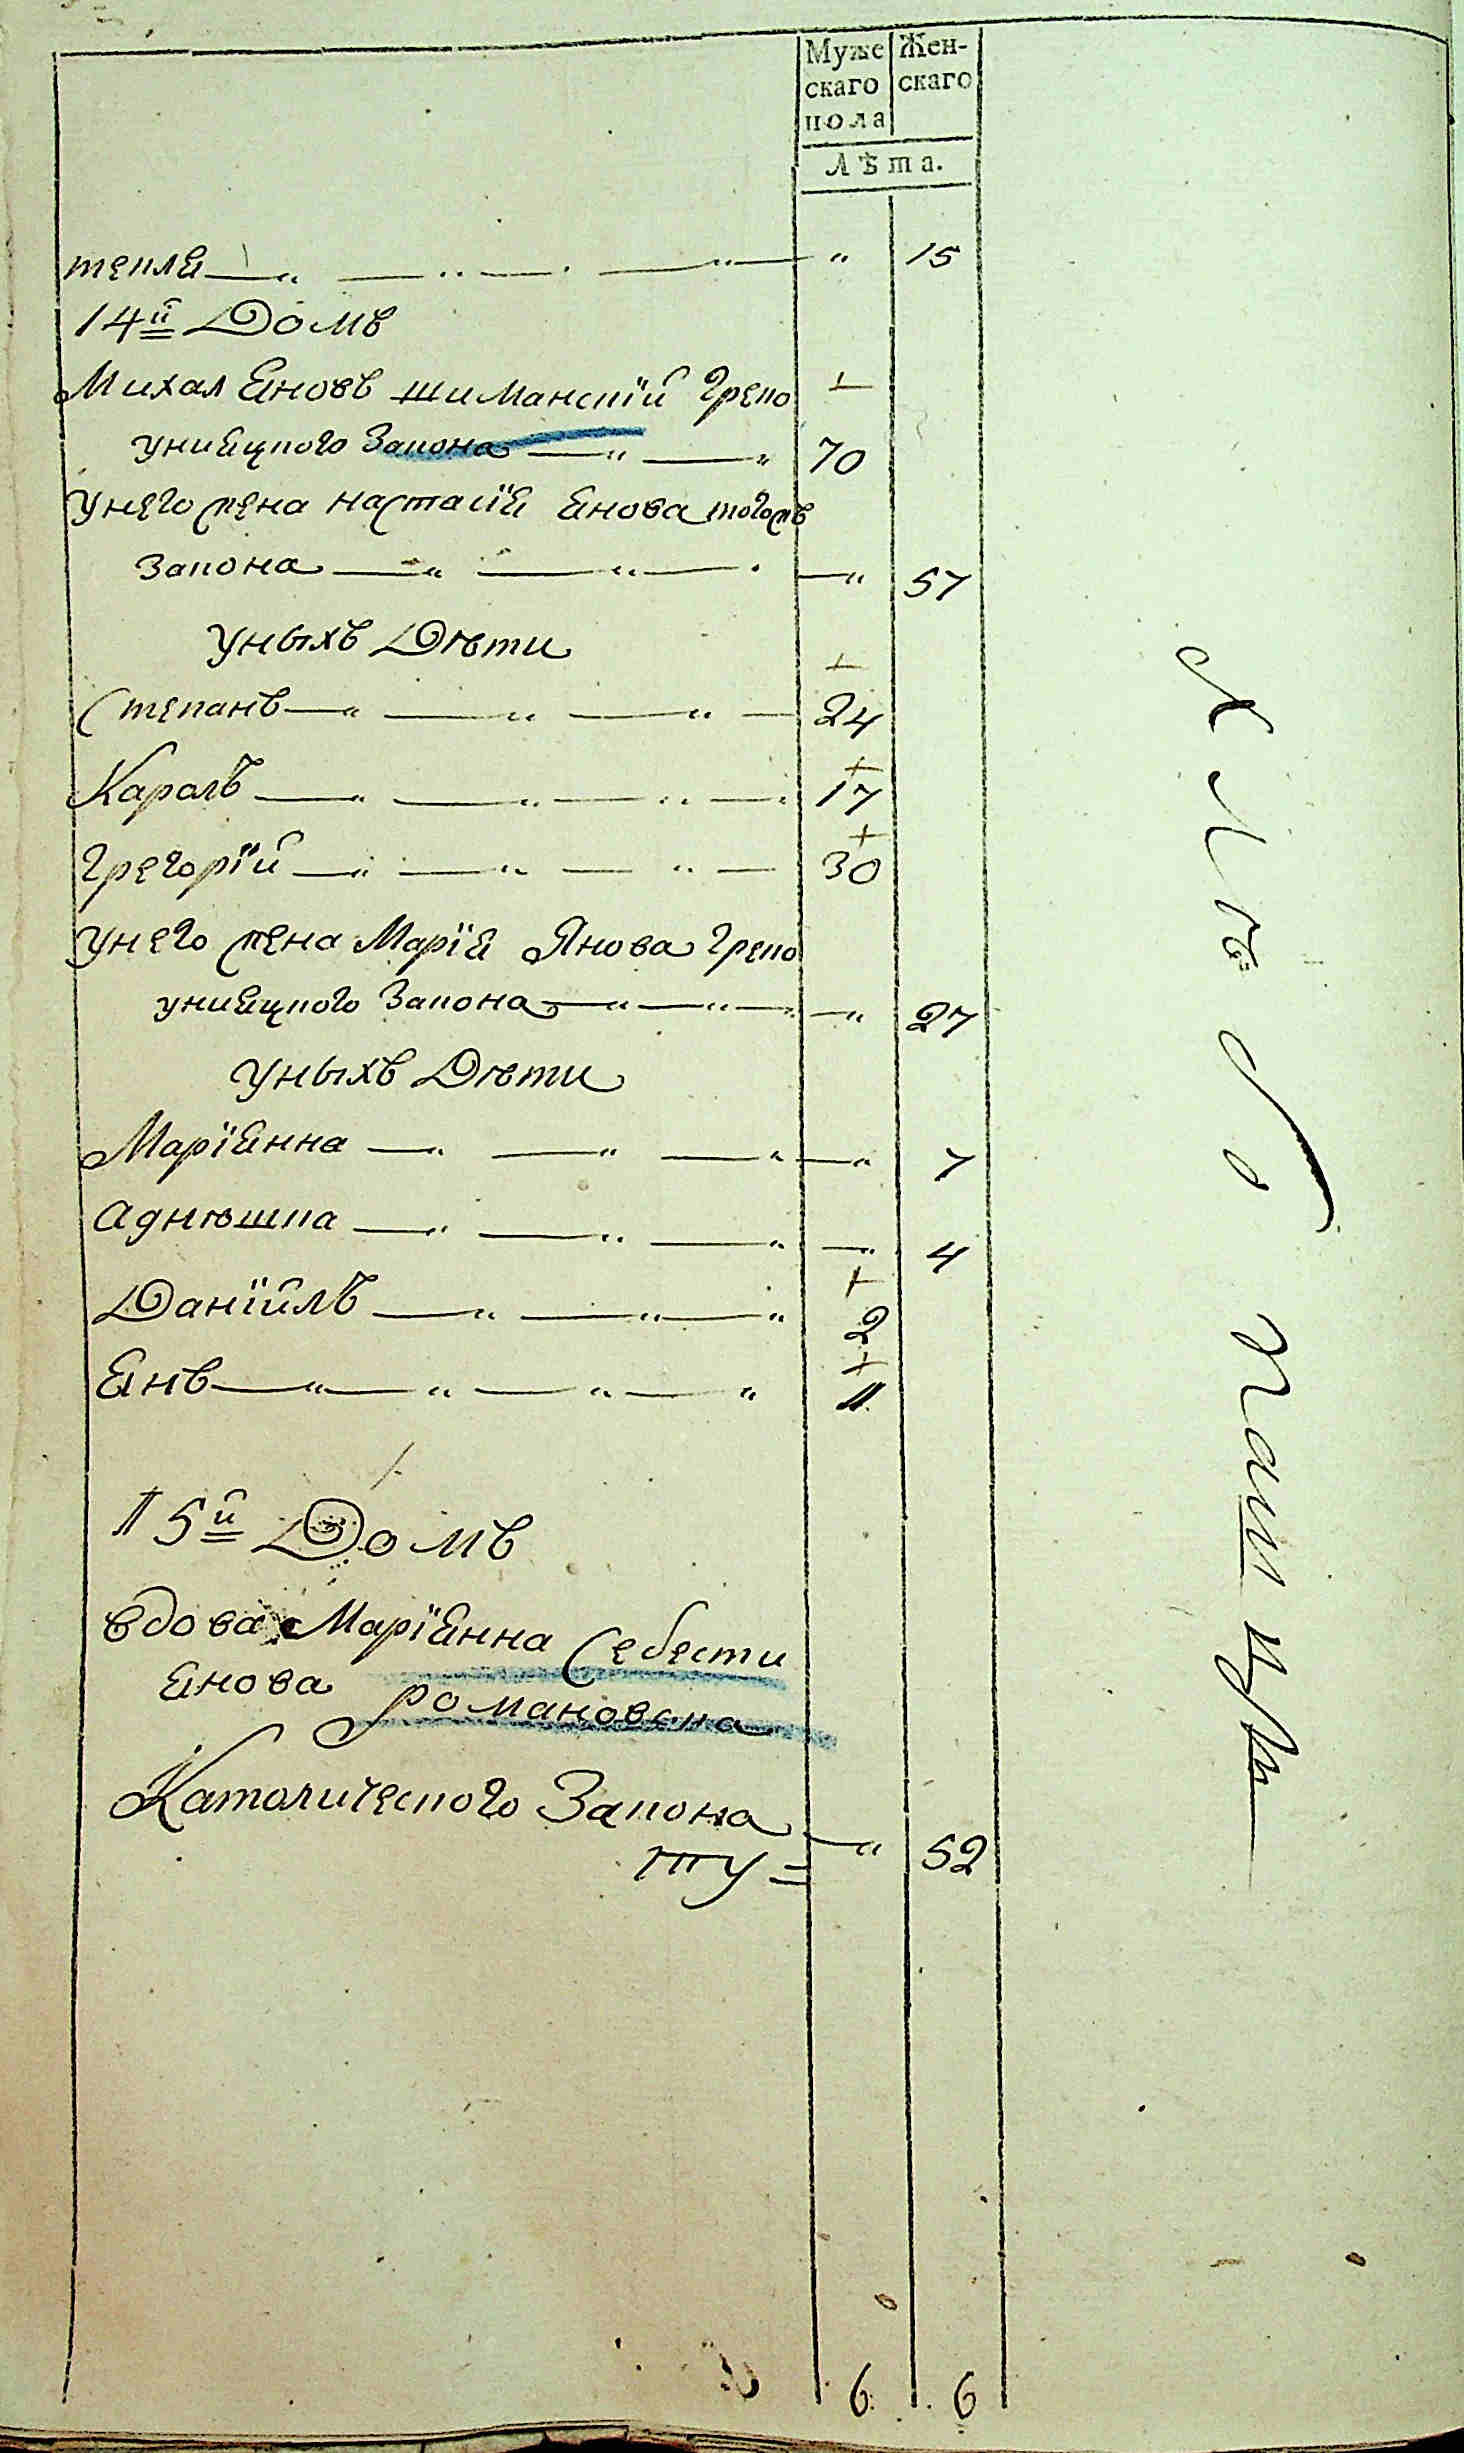 Муже Жен-
скаго скаго
пола
Лѣта.
текля „ 15
14й Домъ
Михал Яновъ шиманскій Греко
униацкого Закона 70
У него жена настасія Янова тогожъ
Закона „ 57
У ныхъ Дѣти
Степанъ 24
Кароль 17
Грегорій 30
У него жена Марія Янова Греко
униацкого Закона „ 27
У ныхъ Дѣти
Маріянна „ 7
4
Даніилъ 2
Янъ 1
15й Домъ
вдова Маріянна Себести
янова романовска
Католического Закона „ 52
6 6